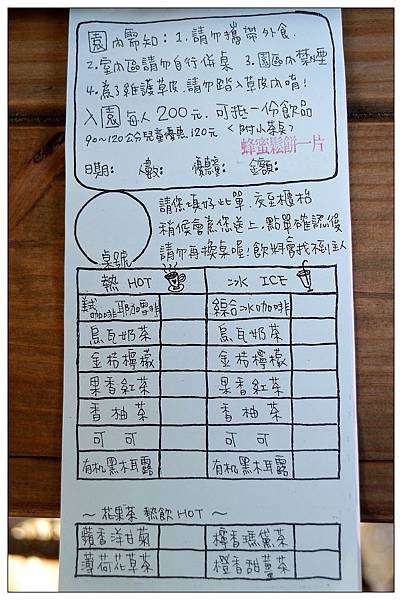 園內需知：1.請勿攜帶外食.
2.室內區請勿自行併桌 3.園區內禁煙
4.為了維護草皮.請勿踏入草皮內唷!
入園每人200元.可抵一份飲品
90~120公分兒童優惠120元 <附小茶桌>
蜂蜜鬆餅一片
日期: 人數: 優惠: 金額:
請您填好此單.交至櫃枱
稍候會為您送上.點單確認後
請勿再換桌喔!飲料會找不到主人
桌號
熱 HOT 冰 ICE
美式咖啡 耶加雪啡 綜合冰咖啡
烏瓦奶茶 烏瓦奶茶
金桔檸檬 金桔檸檬
果香紅茶 果香紅茶
香柚茶 香柚茶
可可 可可
有机黑木耳露 有机黑木耳露
~ 花果茶 熱飲 HOT ~
蘋香洋甘菊 檸香瑪黛茶
薄荷花草茶 橙香甜薑茶